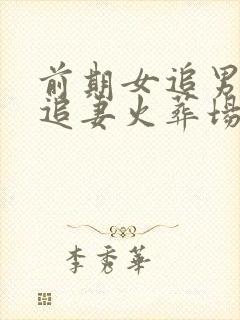 前期女追男
追妻火葬场
李秀华